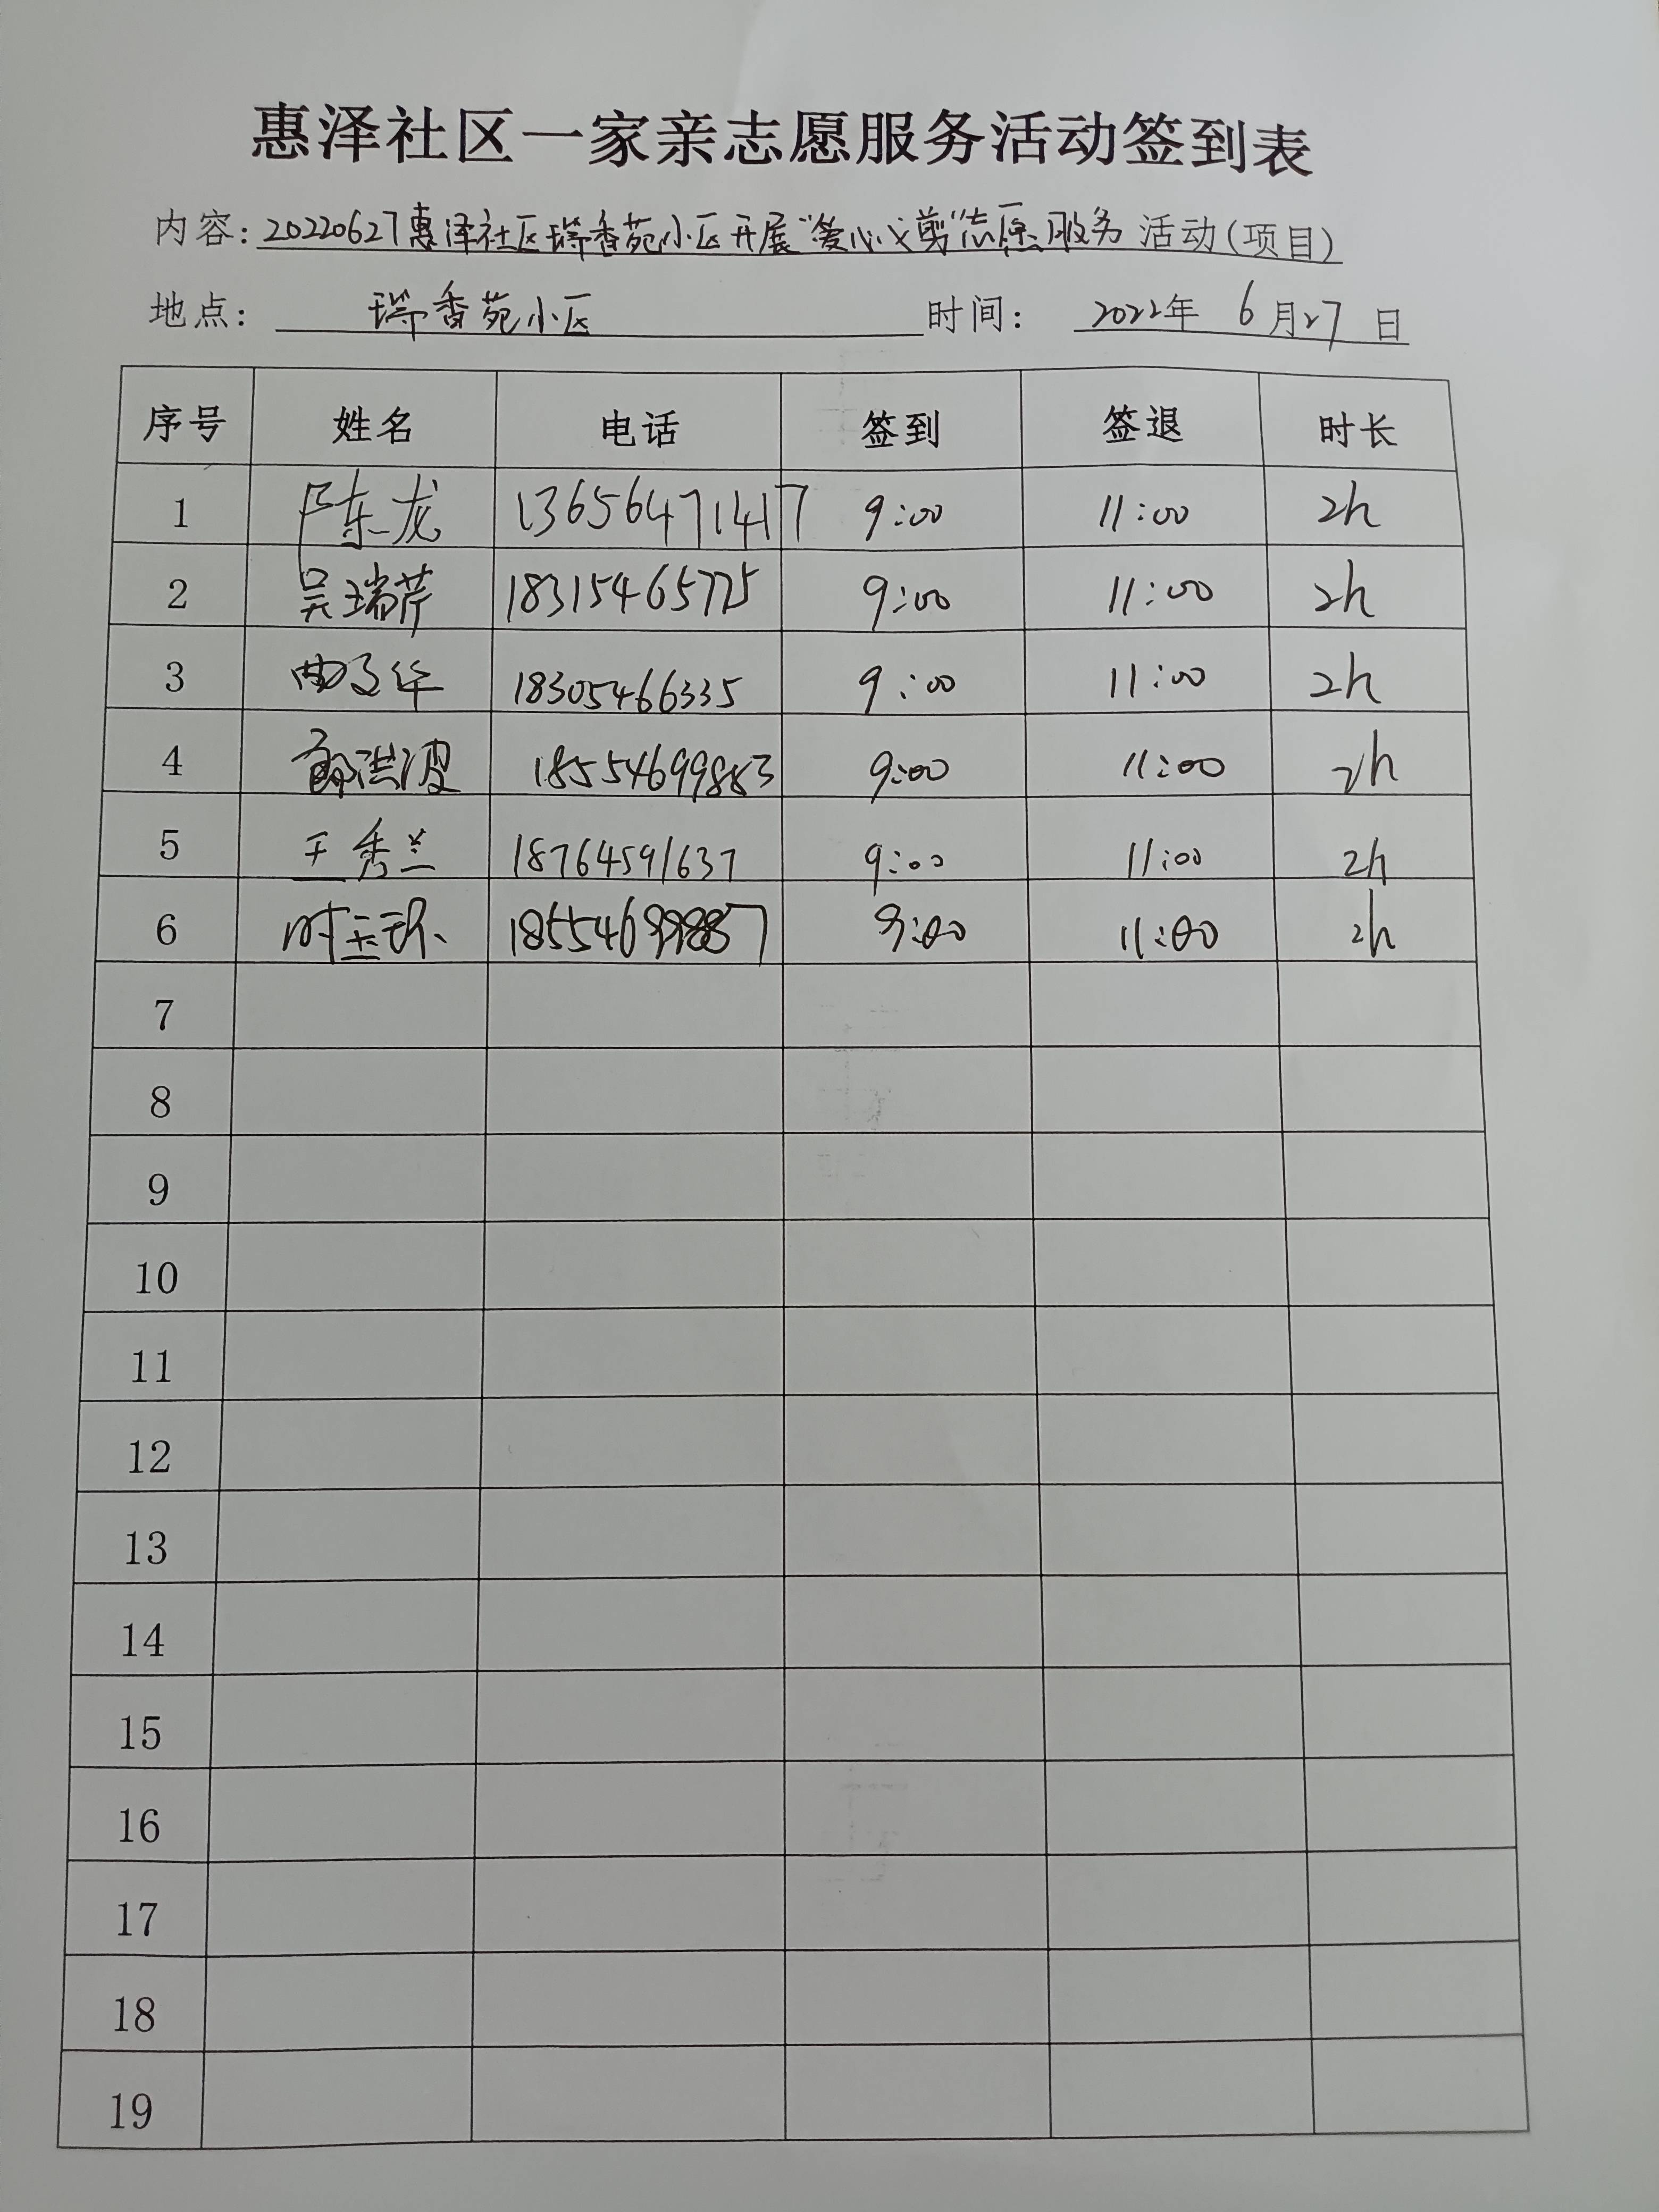 惠泽社区一家亲志愿服务活动签到表
内容:20220627惠泽社区瑞香苑小区开展"爱心义剪"志愿服务 活动(项目)
地点: 瑞香苑小区 时间: 2022年 6月27日
序号 姓名 电话 签到 签退 时长
1 陈龙 13656471417 9:00 11:00 2h
2 吴瑞芹 18315465775 9:00 11:00 2h
3 曲文华 18305466335 9:00 11:00 2h
4 洪波 18554699883 9:00 11:00 2h
5 王秀兰 18764591637 9:00 11:00 2h
6 时玉环 18554699887 9:00 11:00 2h
7
8
9
10
11
12
13
14
15
16
17
18
19